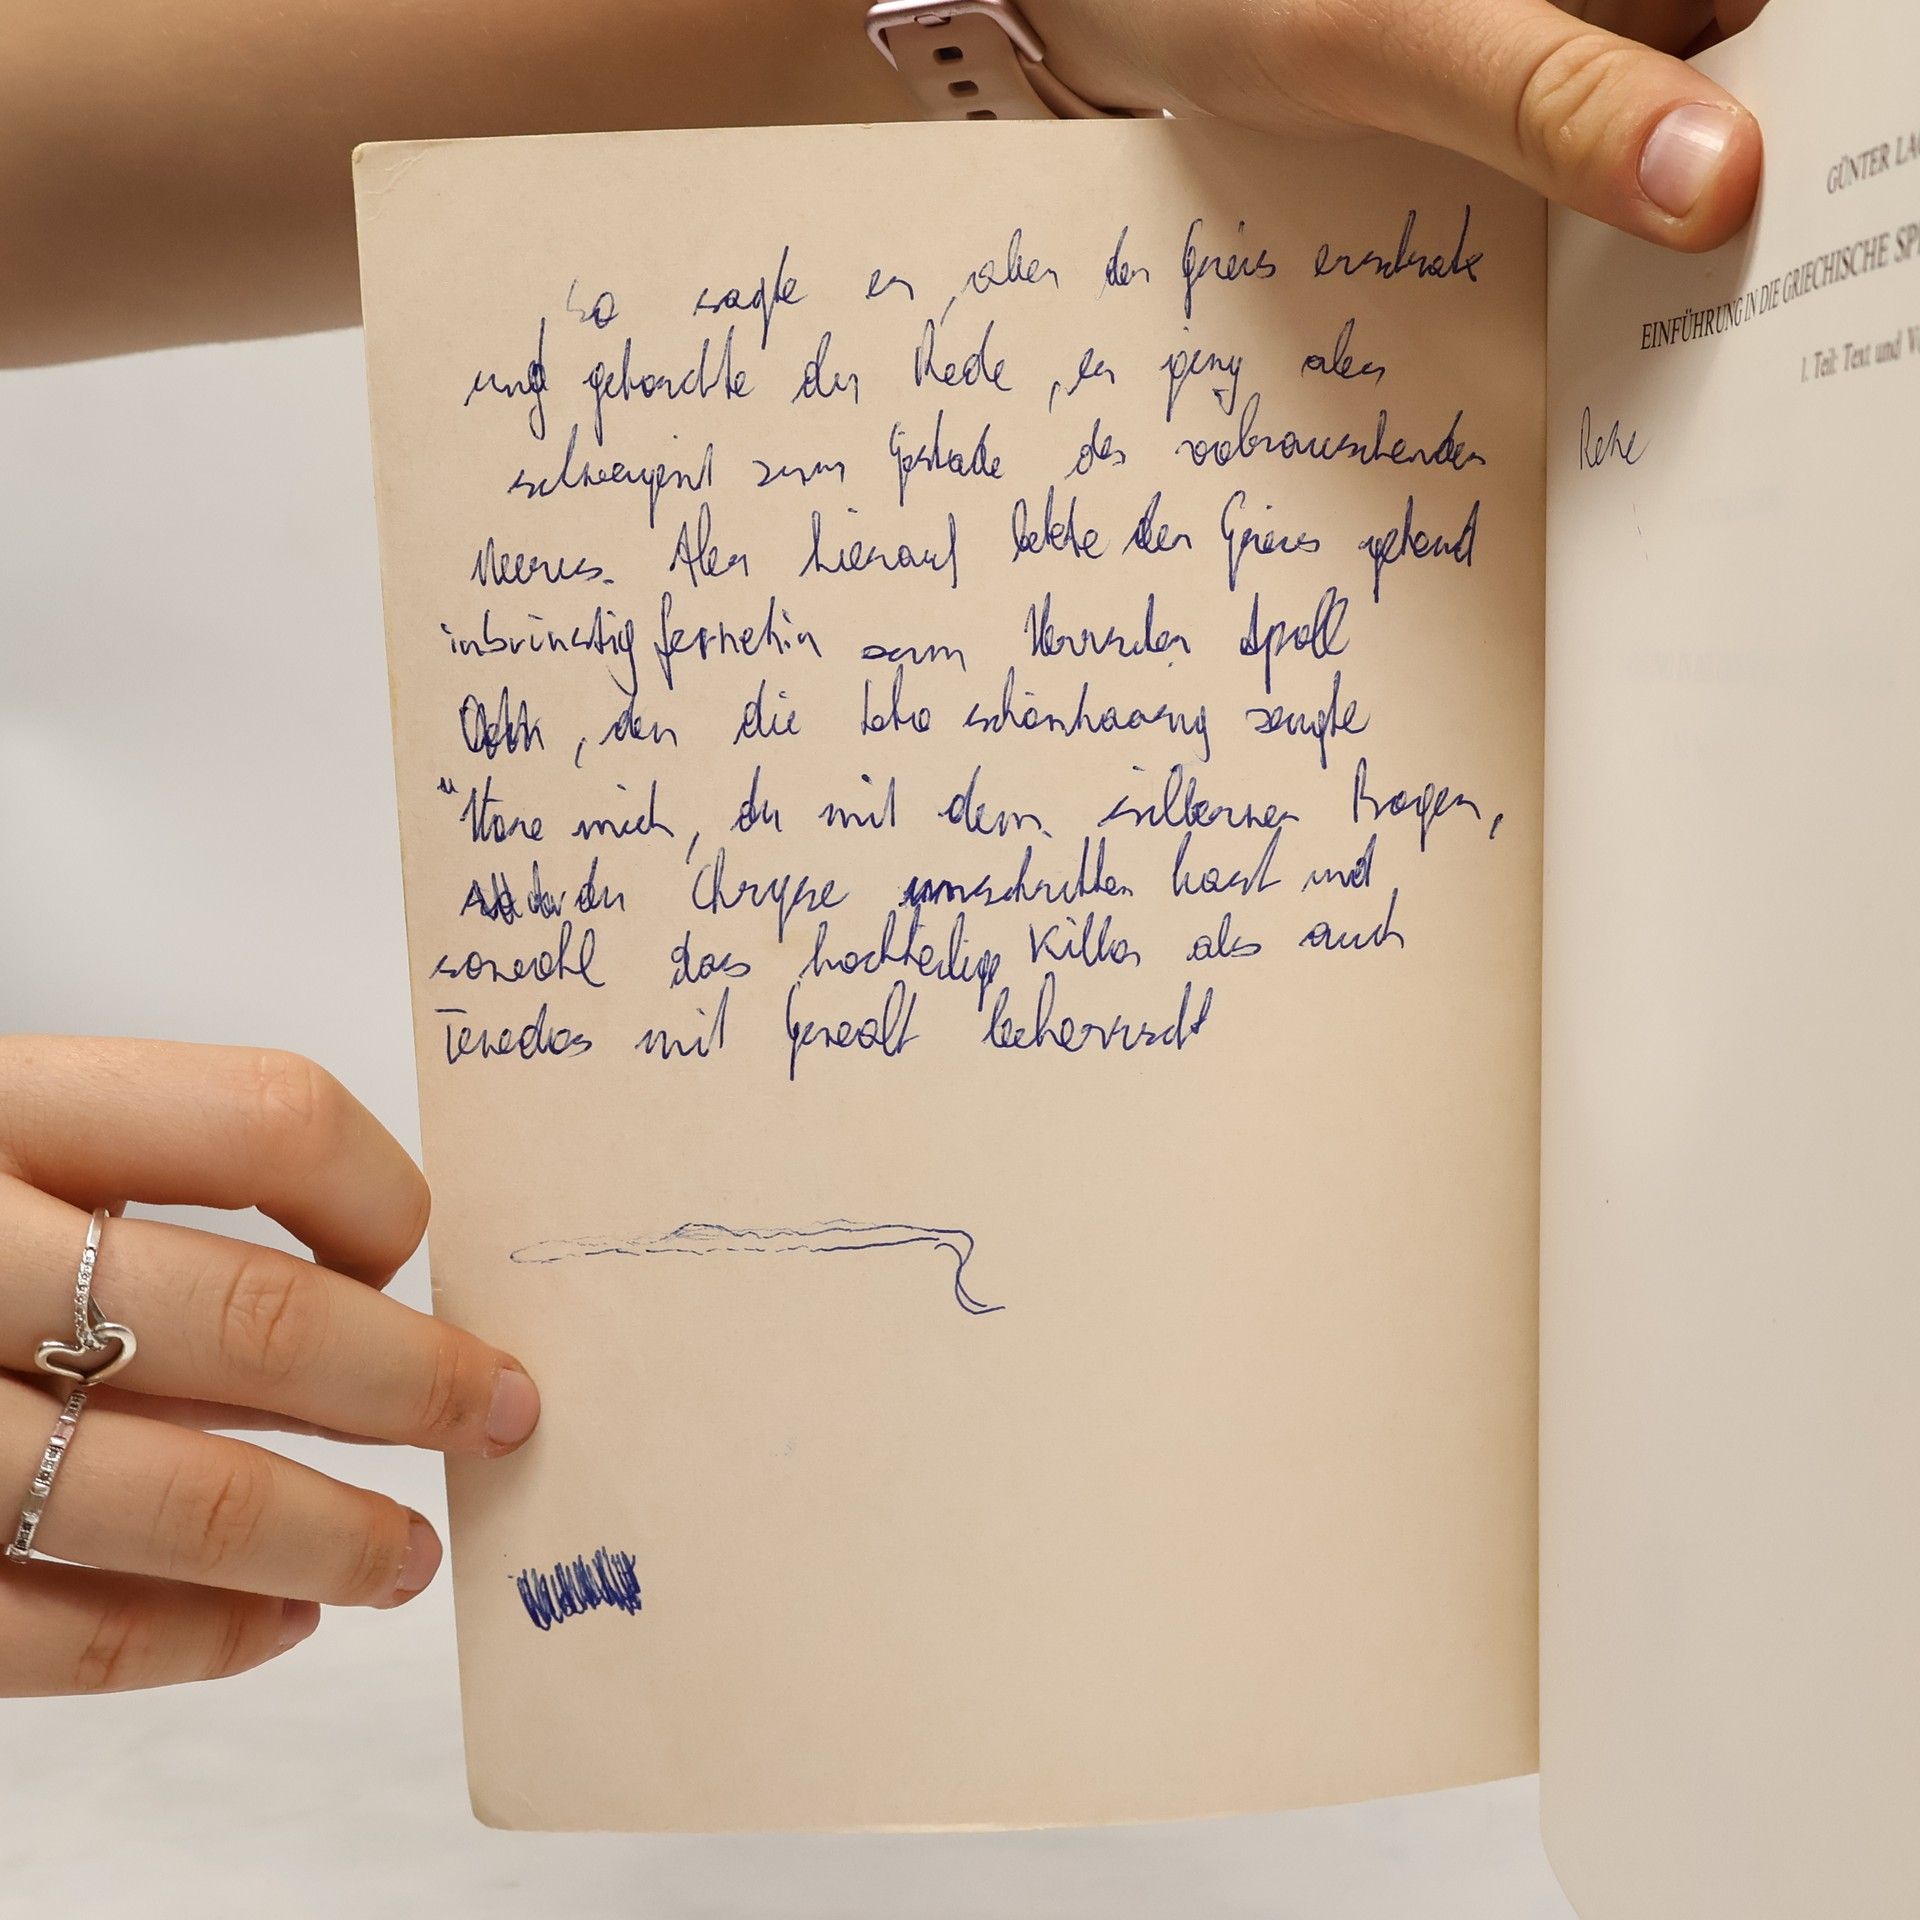 So sagte er, aber der Greis erschrak
und gehorchte der Rede, er ging aber
schweigend zum Gestade des vielbrausenden
Meeres. Aber hierauf betete der Greis gehend
inbrünstig fernehin zum Herrscher Apoll
, den die Leto schönhaarig zeugte
"Höre mich, du mit dem silbernen Bogen,
der du Chryse umschritten hast und
sowohl das hochheilige Killa als auch
Tenedos mit Gewalt beherrscht
GÜNTER
EINFÜHRUNG IN DIE GRIECHISCHE
1. Teil: Text und